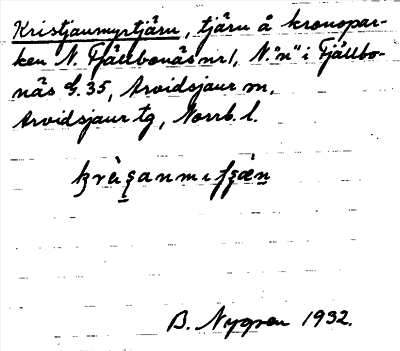 Kristjanmyrtjärn, tjärn å kronopar-
ken N. Fjällbonäs nr 1, N. "n" i Fjällbo-
näs S. 35, Arvidsjaur m,
Arvidsjaur tg, Norrb. l.
B. Nygren 1932.